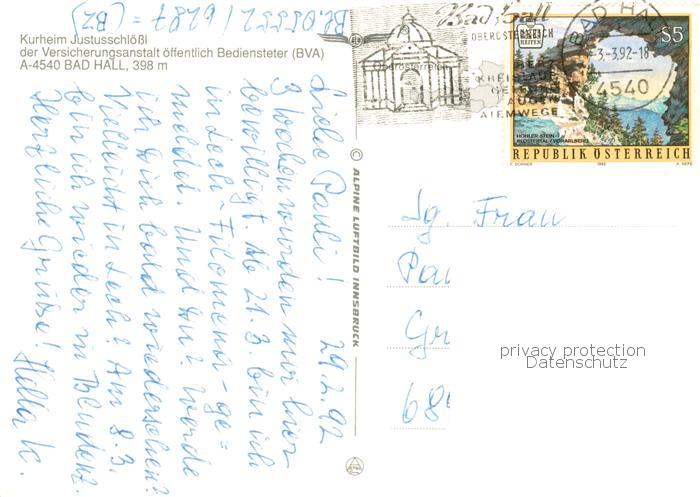 Bl. 05552/6287
= (BZ)
Kurheim Justusschlößl
der Versicherungsanstalt öffentlich Bediensteter (BVA)
A-4540 BAD HALL, 398 m
Oberösterreich
Bad Hall
OBERÖSTERREICH
HERZ
KREISLAUF
GEFÄSSE
AUGEN
ATEMWEGE
BAD HALL
-3.-3.92-18
4540
S5
HOHLER STEIN
KLOSTERTAL/VORARLBERG
REPUBLIK ÖSTERREICH
1992
29.2.92
Liebe Pauli!
3 Wochen wurden mir hier
bewilligt. Ab 21.3. bin ich
in Lech - Filomena - ge=
meldet. Und du? Werde
ich dich bald wiedersehen?
Vielleicht in Lech? Am 8.3.
bin ich wieder in Bludenz.
Herzliche Grüße! Hella K.
© ALPINE LUFTBILD INNSBRUCK
Sg. Frau
Pau
Gr
68
privacy protection
Datenschutz